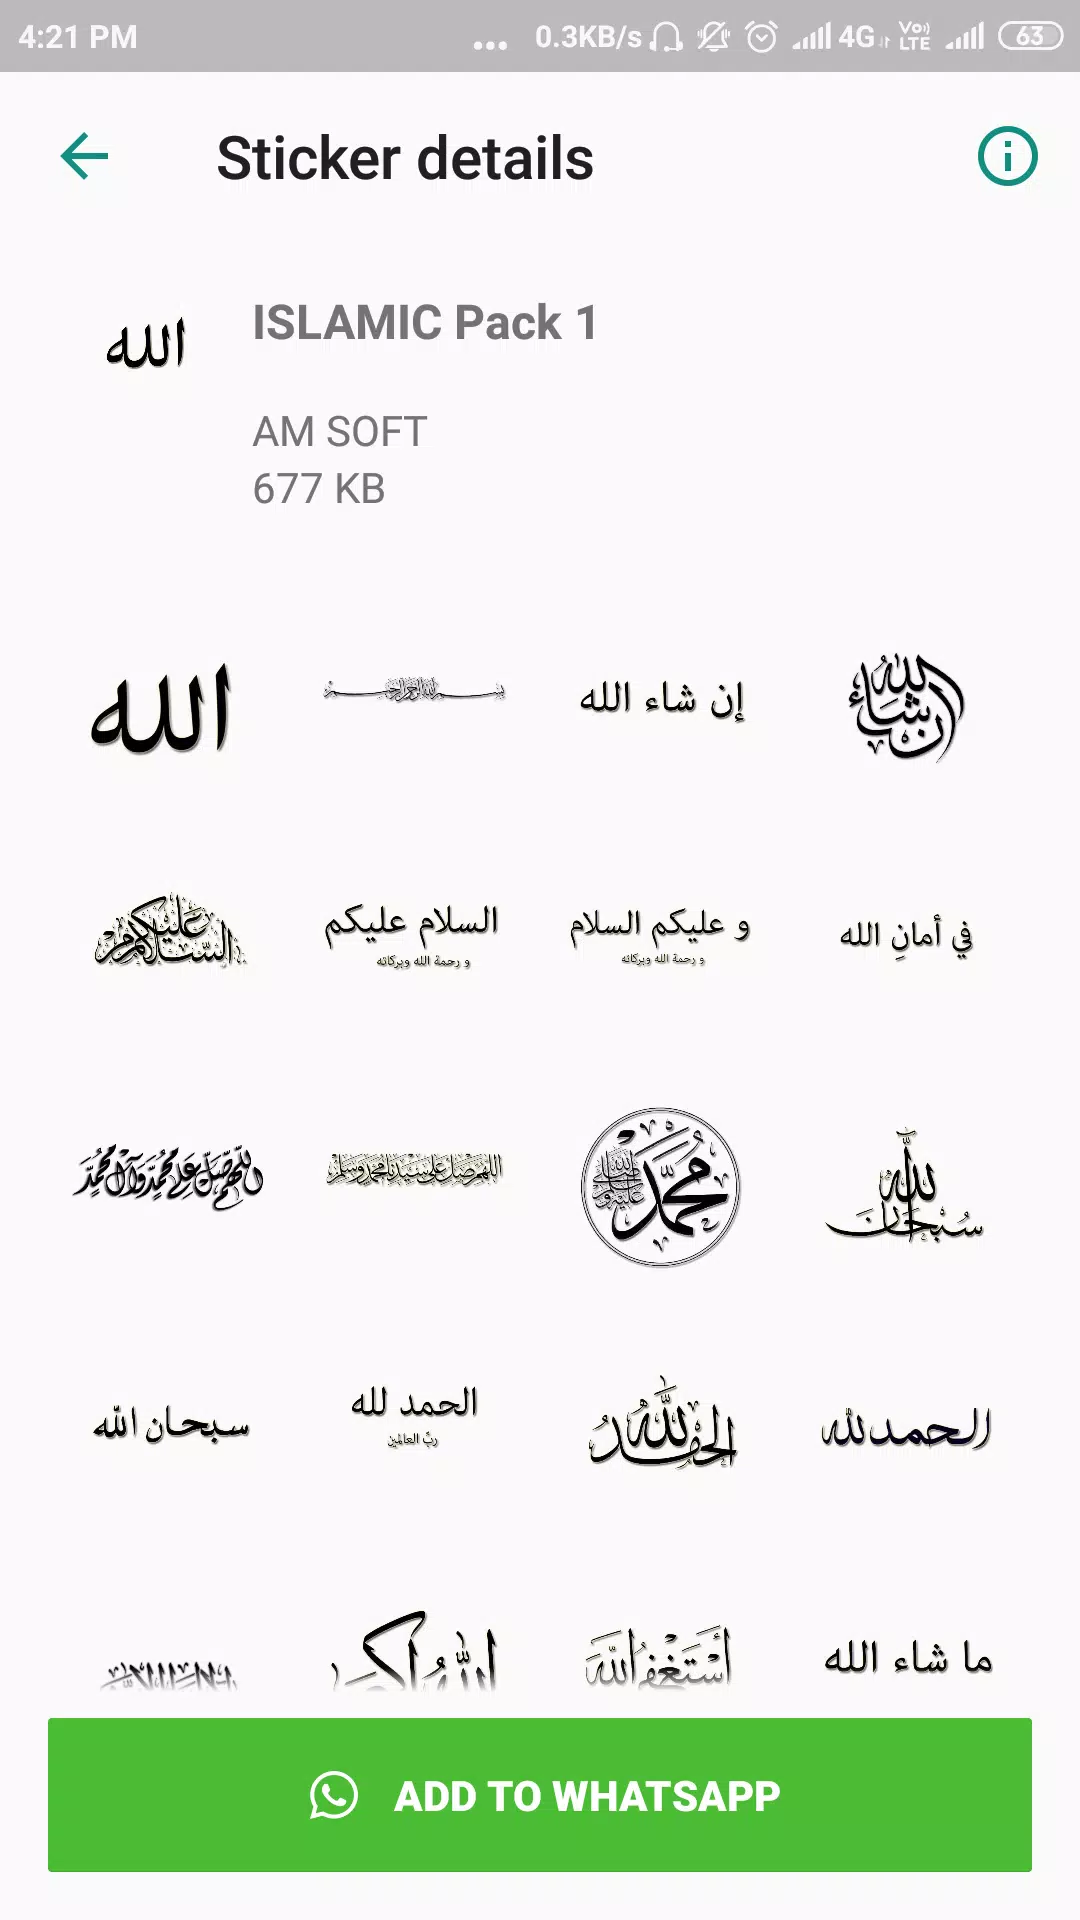 4:21 PM
... 0.3KB/s 4G Vo)) LTE 63
Sticker details
الله
ISLAMIC Pack 1
AM SOFT
677 KB
الله
بسم الله الرحمن الرحيم
إن شاء الله
إن شاء الله
السلام عليكم
السلام عليكم
و رحمة الله وبركاته
و عليكم السلام
و رحمة الله وبركاته
في أمانِ الله
اللهم صل على محمد وآل محمد
اللهم صل على سيدنا محمد وسلم
محمد صلى الله عليه وسلم
سبحان الله
سبحان الله
الحمد لله
ربّ العالمين
الحمد لله
الحمد لله
الله أكبر
أستغفر الله
ما شاء الله
ADD TO WHATSAPP